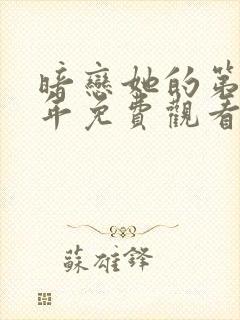 暗戀她的第
年免費觀看
蘇雄鋒